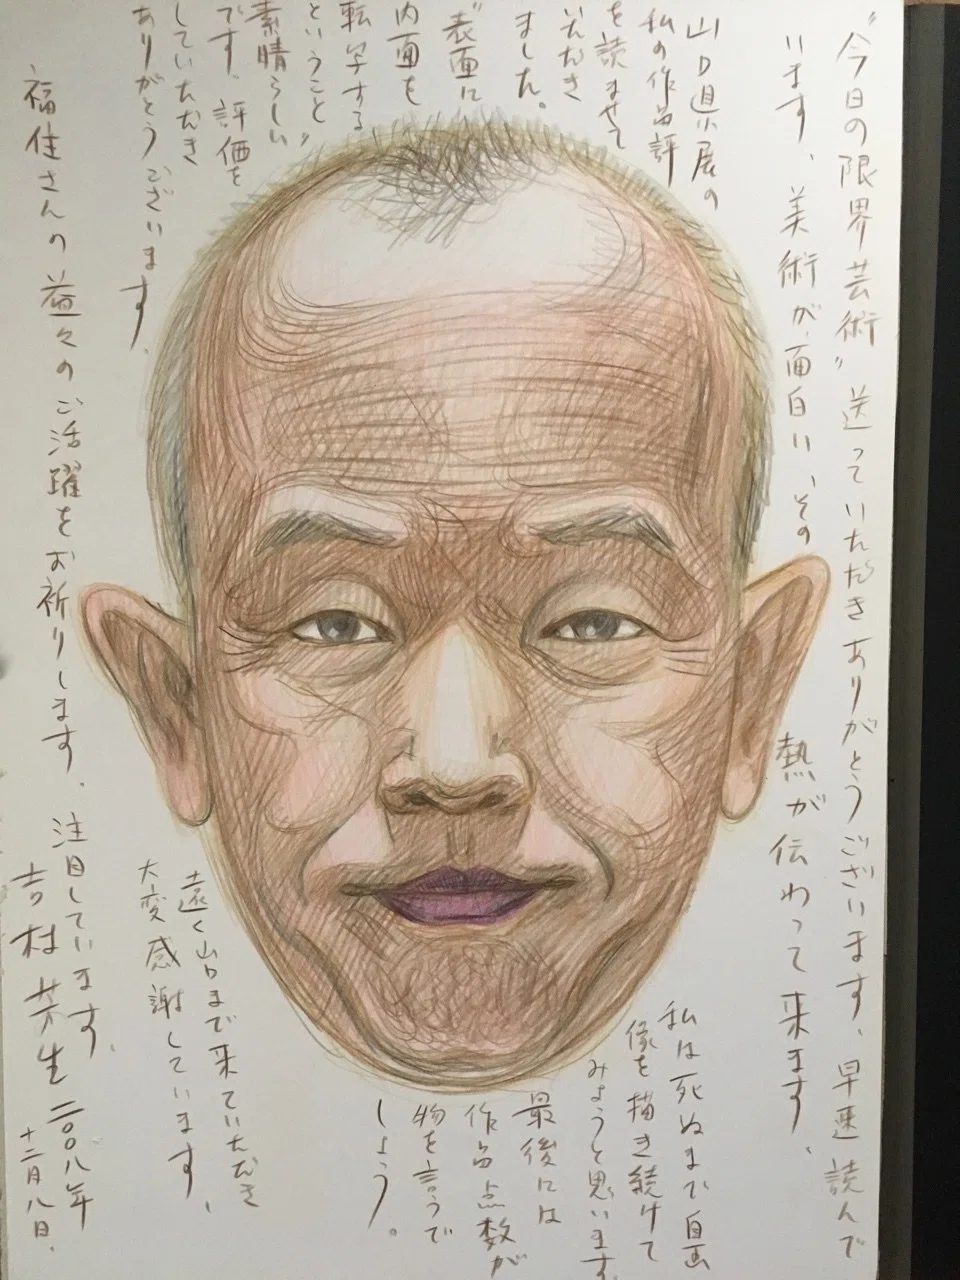 “今日の限界芸術”送っていただきありがとうございます、早速読んで
います、美術が、面白い、その熱が伝わって来ます、
山口県展の
私の作品評
を読ませて
いただき
ました。
“表面に
内面を
転写する
ということ”
素晴らしい
です。評価を
していただき
ありがとうございます。
私は死ぬまで自画
像を描き続けて
みようと思います、
最後には
作品点数が
物を言うで
しょう。
遠く山口まで来ていただき
大変感謝しています、
福住さんの益々のご活躍をお祈りします、注目しています。
吉村芳生 二〇〇八年
十二月八日、